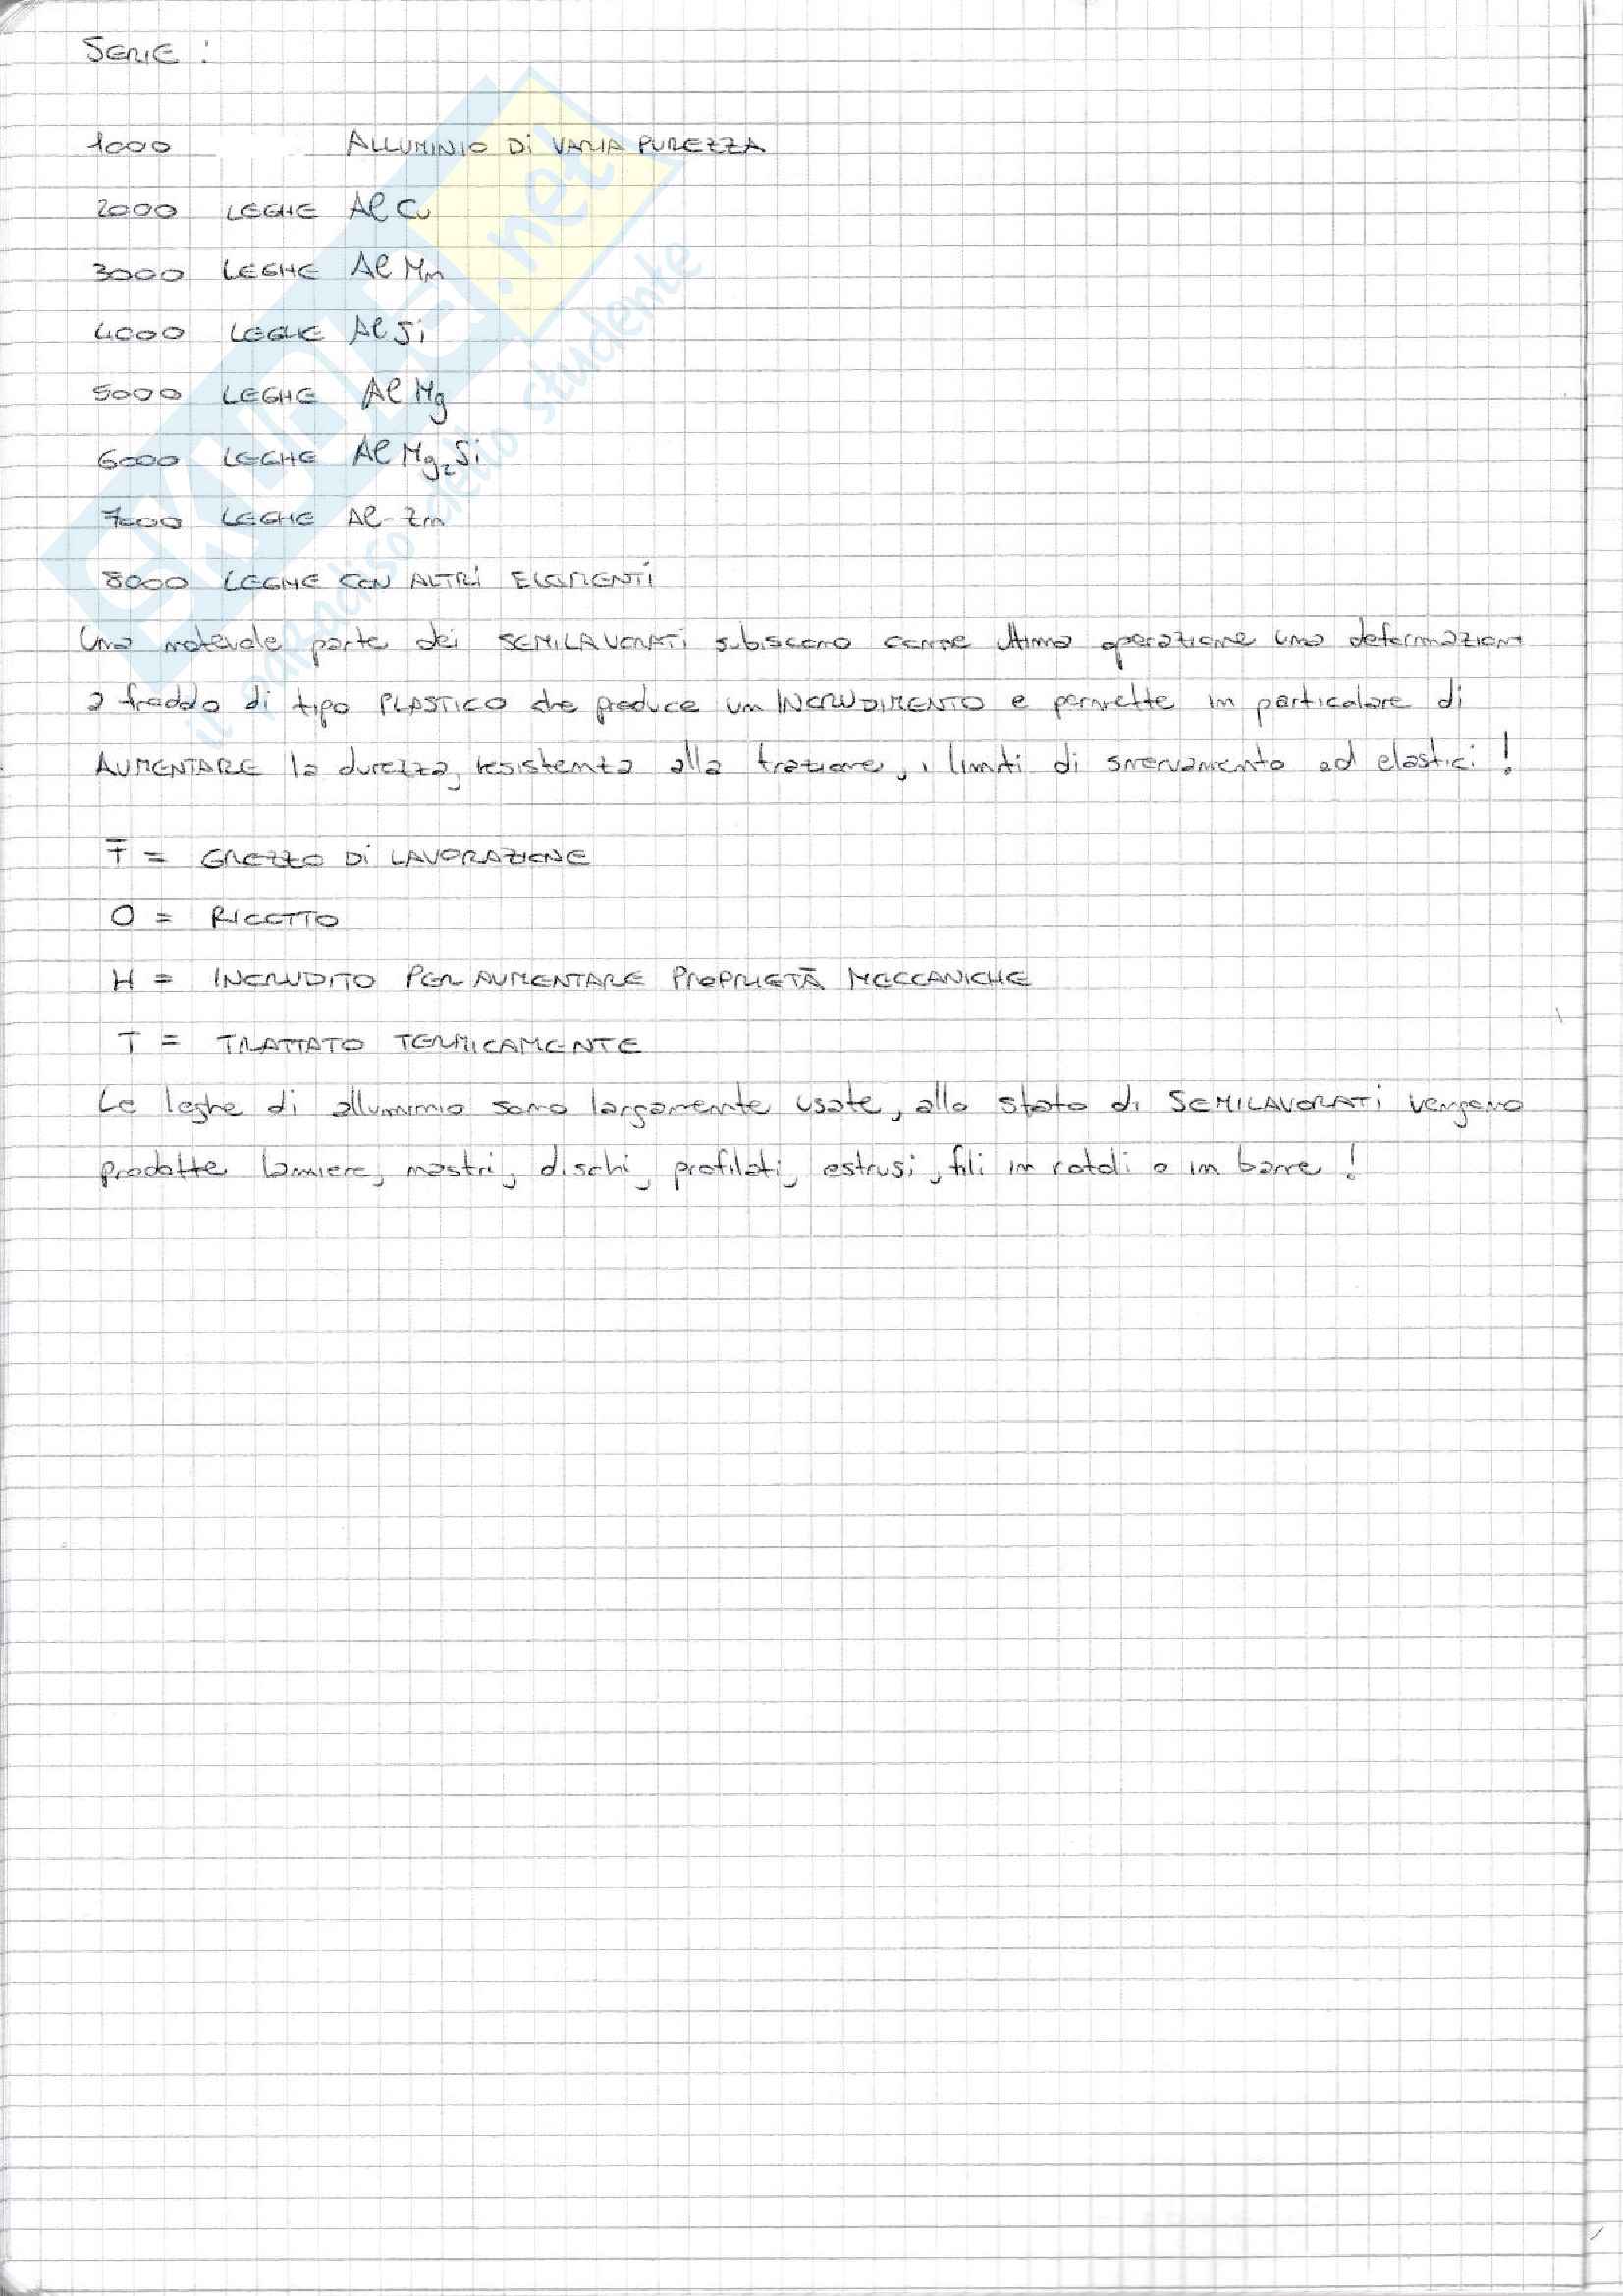 SERIE :
1000 ALLUMINIO Di VARIA PUREZZA
2000 LEGHE Al Cu
3000 LEGHE Al Mn
4000 LEGHE Al Si
5000 LEGHE Al Mg
6000 LEGHE Al Mg2Si
7000 LEGHE Al-Zn
8000 LEGHE CON ALTRi ELEMENTi
Una notevole parte dei SEMILAVORATi subiscono come ultima operazione una deformazione
a freddo di tipo PLASTICO che produce un INCRUDIMENTO e permette in particolare di
AUMENTARE la durezza, resistenza alla trazione, i limiti di snervamento ed elastici !
F = GREZZO Di LAVORAZIONE
O = RICOTTO
H = INCRUDITO PER AUMENTARE PROPRIETÀ MECCANICHE
T = TRATTATO TERMICAMENTE
Le leghe di alluminio sono largamente usate, allo stato di SEMILAVORATi vengono
prodotte lamiere, nastri, dischi, profilati, estrusi, fili in rotoli o in barre !
SKUOLA.net
il paradiso dello studente